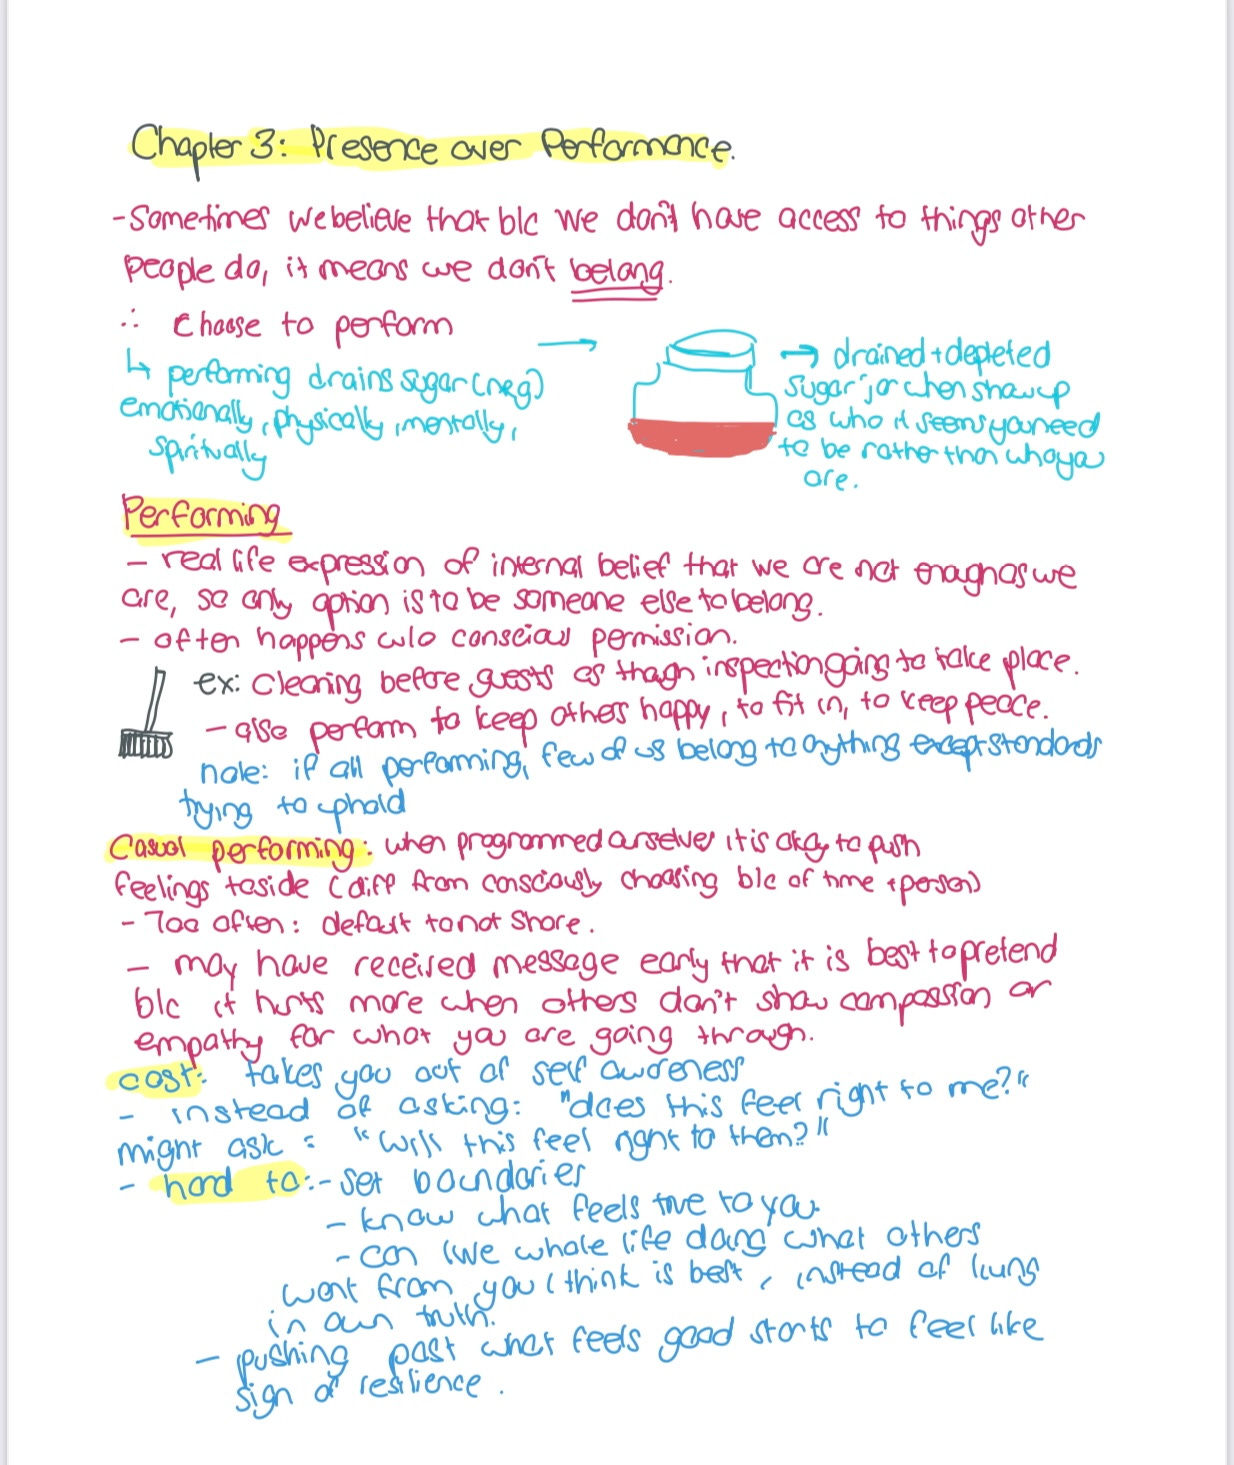 Chapter 3: Presence over Performance.
- Sometimes we believe that b/c we don't have access to things other
people do, it means we don't belong.
∴ Choose to perform
↳ performing drains sugar (neg)
emotionally, physically, mentally,
spiritually
→
→ drained + depleted
sugar jar when show up
as who it seems you need
to be rather than who you
are.
Performing
- real life expression of internal belief that we are not enough as we
are, so only option is to be someone else to belong.
- often happens w/o conscious permission.
ex: Cleaning before guests as though inspection going to take place.
- also perform to keep others happy, to fit in, to keep peace.
note: if all performing, few of us belong to anything except standards
trying to uphold
Casual performing: when programmed ourselves it is okay to push
feelings to side (diff from consciously choosing b/c of time + person)
- Too often: default to not share.
- may have received message early that it is best to pretend
b/c it hurts more when others don't show compassion or
empathy for what you are going through.
cost: takes you out of self awareness
- instead of asking: "does this feel right to me?"
might ask: "Will this feel right to them?"
- hard to: - set boundaries
- know what feels true to you.
- can live whole life doing what others
want from you / think is best, instead of living
in own truth.
- pushing past what feels good starts to feel like
sign of resilience.